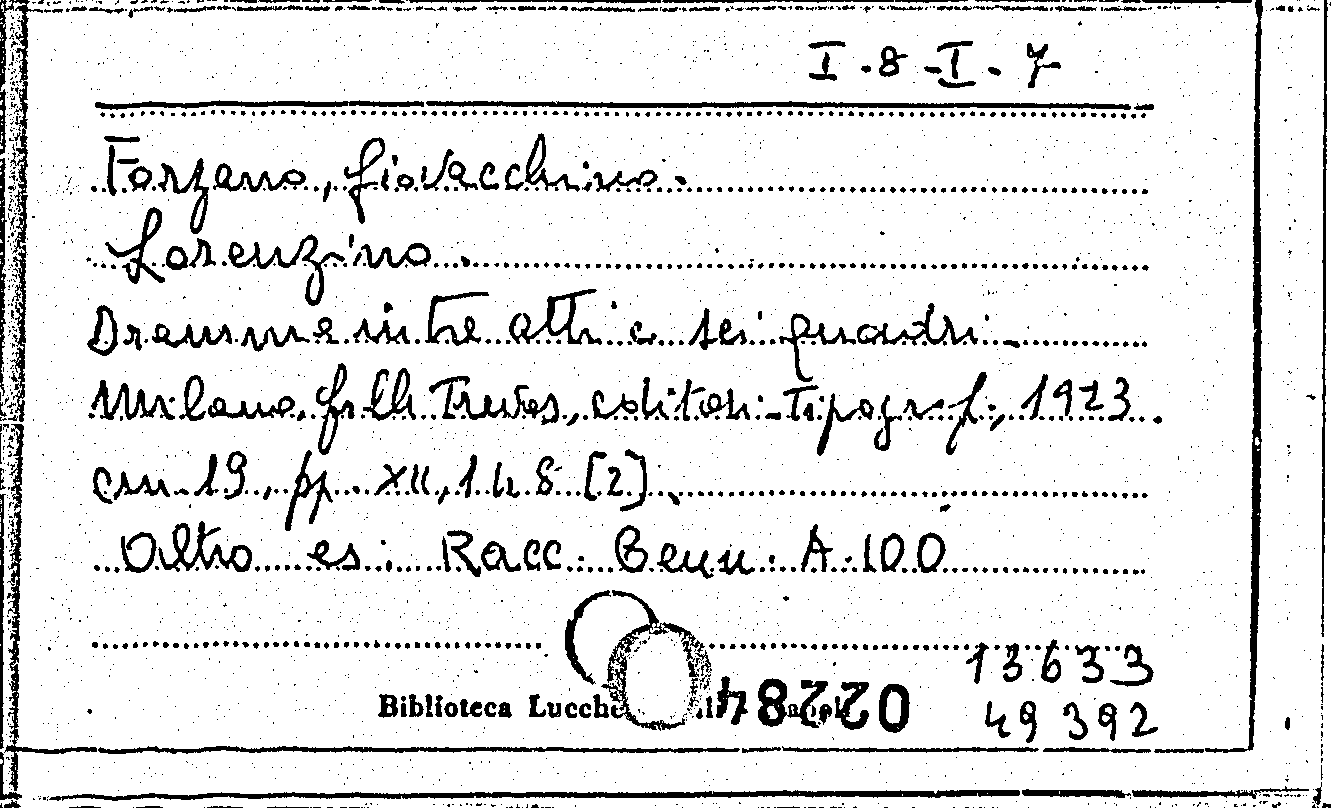 I.8-I.7
Forzano, Giovacchino.
Lorenzino.
Dramma in tre atti e sei quadri.
Milano, f.lli Treves, editori-Tipograf., 1923.
cm. 19, pp. XII, 148 [2].
Altro es: Racc. Benn. A.100
13633
Biblioteca 02284
49392